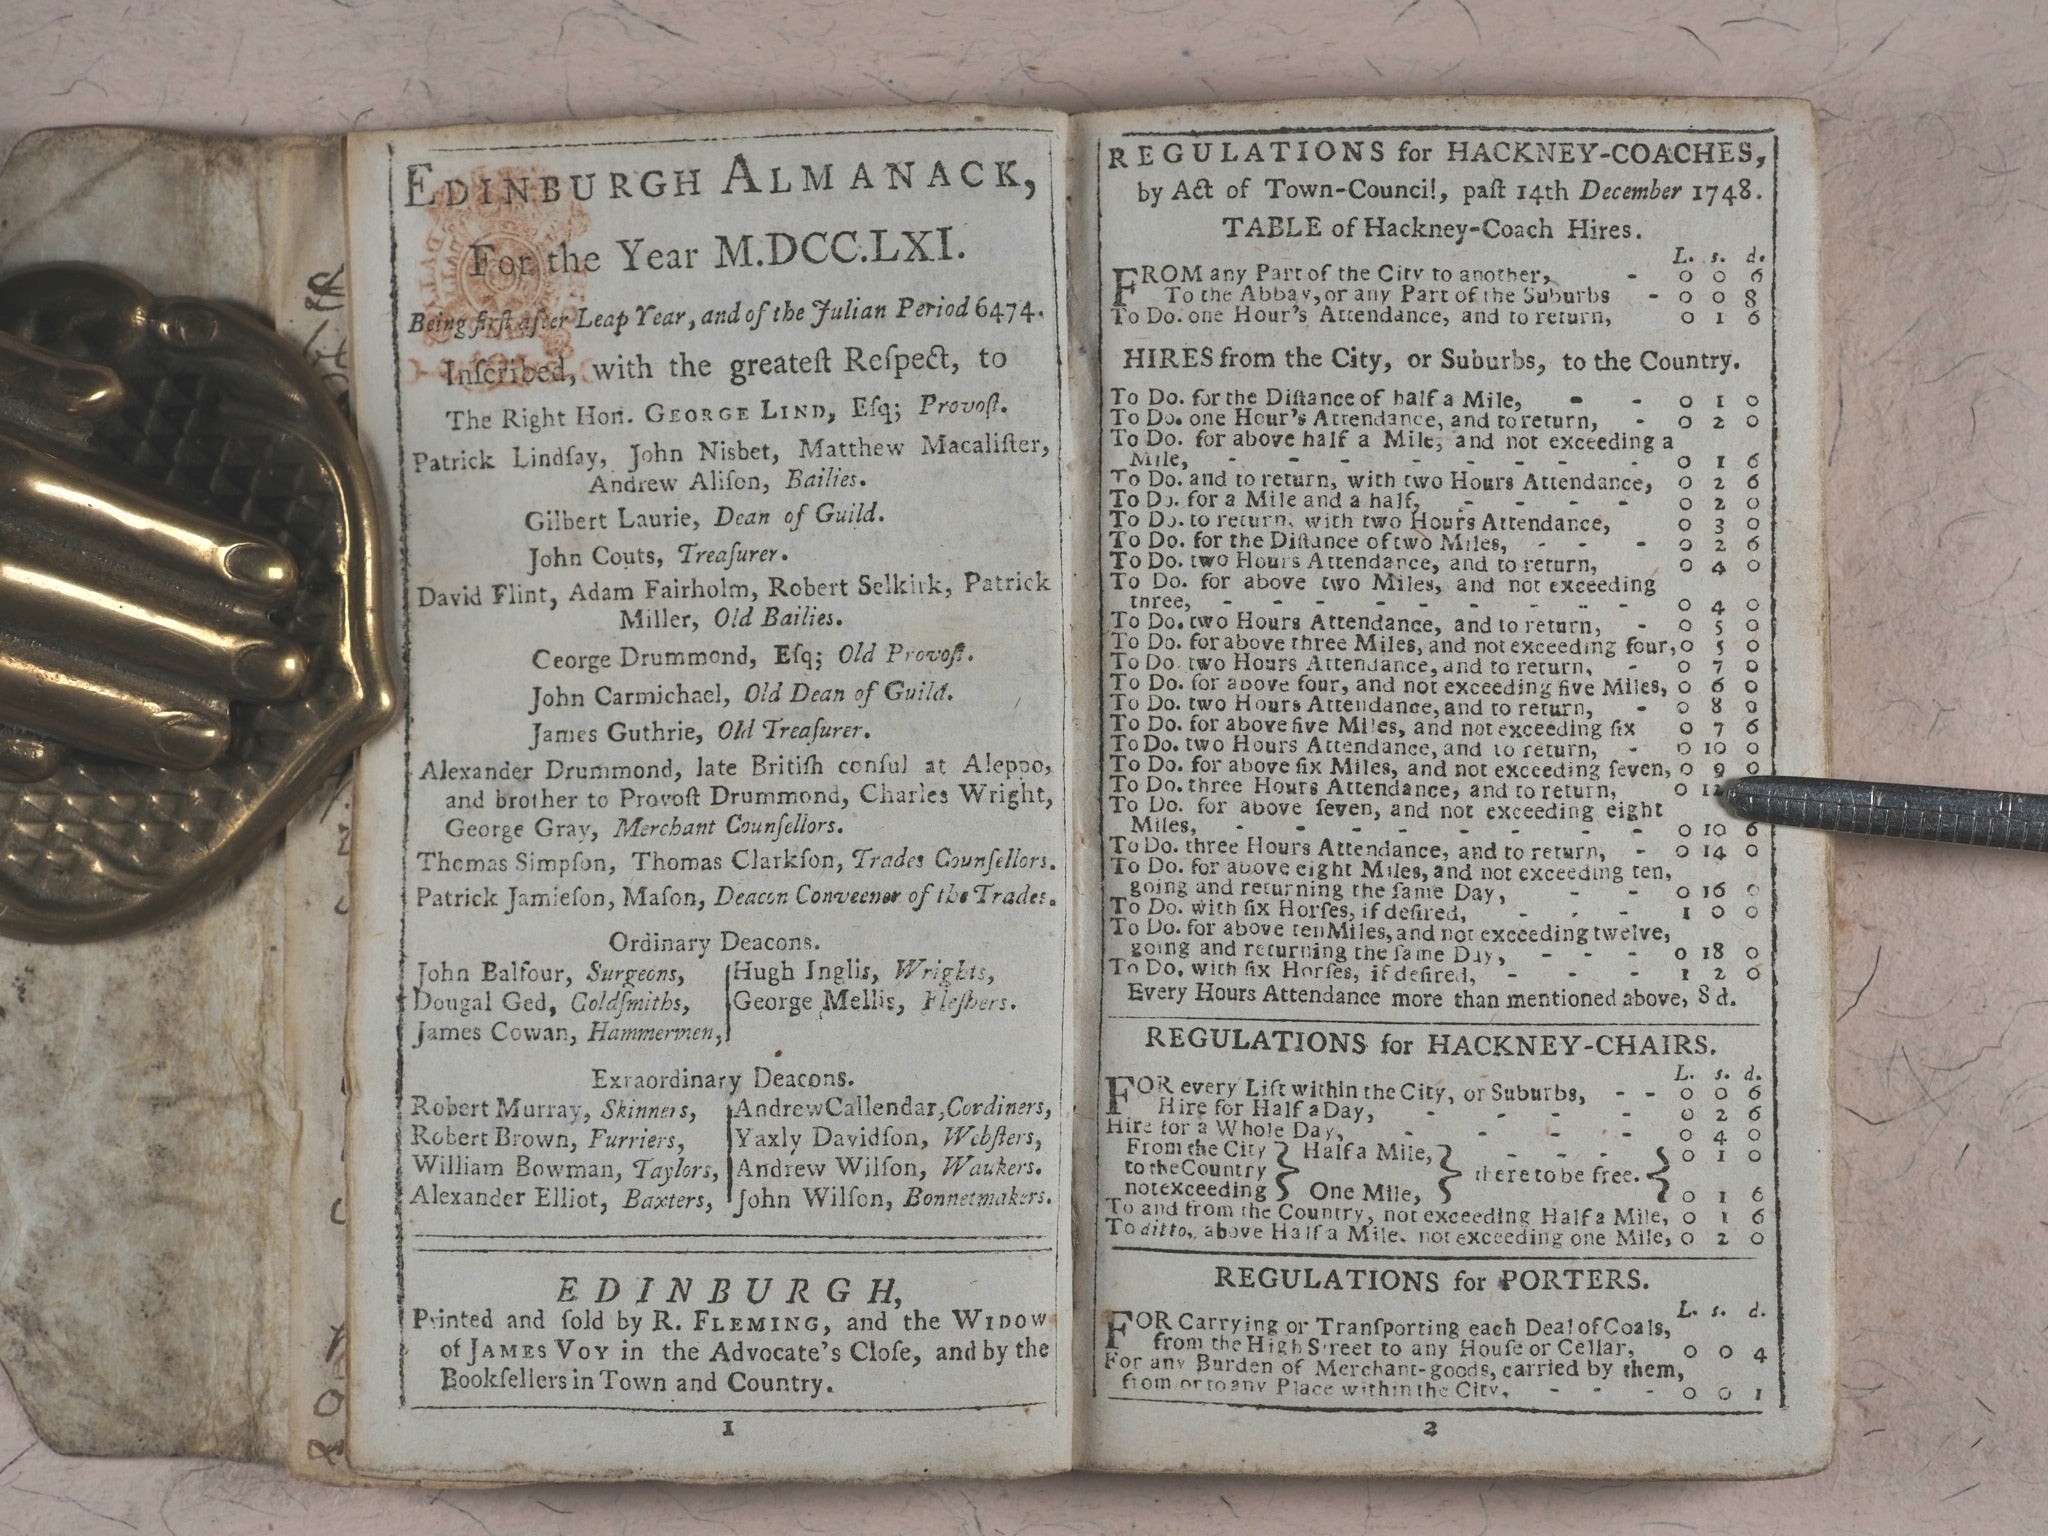 EDINBURGH ALMANACK,
For the Year M.DCC.LXI.
Being firſt after Leap Year, and of the Julian Period 6474.
Inſcribed, with the greateſt Reſpect, to
The Right Hon. GEORGE LIND, Eſq; Provoſt.
Patrick Lindſay, John Nisbet, Matthew Macaliſter,
Andrew Aliſon, Bailies.
Gilbert Laurie, Dean of Guild.
John Couts, Treaſurer.
David Flint, Adam Fairholm, Robert Selkirk, Patrick
Miller, Old Bailies.
George Drummond, Eſq; Old Provoſt.
John Carmichael, Old Dean of Guild.
James Guthrie, Old Treaſurer.
Alexander Drummond, late Britiſh conſul at Aleppo,
and brother to Provoſt Drummond, Charles Wright,
George Gray, Merchant Counſellors.
Thomas Simpſon, Thomas Clarkſon, Trades Counſellors.
Patrick Jamieſon, Maſon, Deacon Conveener of the Trades.
Ordinary Deacons.
John Balfour, Surgeons,
Dougal Ged, Goldſmiths,
James Cowan, Hammermen,
Hugh Inglis, Wrights,
George Mellis, Fleſhers.
Extraordinary Deacons.
Robert Murray, Skinners,
Robert Brown, Furriers,
William Bowman, Taylors,
Alexander Elliot, Baxters,
Andrew Callendar, Cordiners,
Yaxly Davidſon, Webſters,
Andrew Wilſon, Waukers.
John Wilſon, Bonnetmakers.
EDINBURGH,
Printed and ſold by R. FLEMING, and the WIDOW
of JAMES VOY in the Advocate's Cloſe, and by the
Bookſellers in Town and Country.
1
REGULATIONS for HACKNEY-COACHES,
by Act of Town-Council, paſt 14th December 1748.
TABLE of Hackney-Coach Hires.
L. s. d.
FROM any Part of the City to another, - 0 0 6
To the Abbay, or any Part of the Suburbs - 0 0 8
To Do. one Hour's Attendance, and to return, 0 1 6
HIRES from the City, or Suburbs, to the Country.
To Do. for the Diſtance of half a Mile, - - 0 1 0
To Do. one Hour's Attendance, and to return, - 0 2 0
To Do. for above half a Mile, and not exceeding a
Mile, - - - - - - - - 0 1 6
To Do. and to return, with two Hours Attendance, 0 2 6
To Do. for a Mile and a half, - - - - 0 2 0
To Do. to return, with two Hours Attendance, 0 3 0
To Do. for the Diſtance of two Miles, - - - 0 2 6
To Do. two Hours Attendance, and to return, 0 4 0
To Do. for above two Miles, and not exceeding
three, - - - - - - - - - 0 4 0
To Do. two Hours Attendance, and to return, - 0 5 0
To Do. for above three Miles, and not exceeding four, 0 5 0
To Do. two Hours Attendance, and to return, - 0 7 0
To Do. for above four, and not exceeding five Miles, 0 6 0
To Do. two Hours Attendance, and to return, - 0 8 0
To Do. for above five Miles, and not exceeding ſix 0 7 6
To Do. two Hours Attendance, and to return, - 0 10 0
To Do. for above ſix Miles, and not exceeding ſeven, 0 9 0
To Do. three Hours Attendance, and to return, 0
To Do. for above ſeven, and not exceeding eight
Miles, - - - - - - - - 0 10 6
To Do. three Hours Attendance, and to return, - 0 14 0
To Do. for above eight Miles, and not exceeding ten,
going and returning the ſame Day, - - 0 16 0
To Do. with ſix Horſes, if deſired, - - - 1 0 0
To Do. for above ten Miles, and not exceeding twelve,
going and returning the ſame Day, - - - 0 18 0
To Do. with ſix Horſes, if deſired, - - - 1 2 0
Every Hours Attendance more than mentioned above, 8 d.
REGULATIONS for HACKNEY-CHAIRS.
L. s. d.
FOR every Lift within the City, or Suburbs, - - 0 0 6
Hire for Half a Day, - - - - 0 2 6
Hire for a Whole Day, - - - - 0 4 0
From the City } Half a Mile, } - - - { 0 1 0
to the Country } } there to be free. {
not exceeding } One Mile, } { 0 1 6
To and from the Country, not exceeding Half a Mile, 0 1 6
To ditto, above Half a Mile, not exceeding one Mile, 0 2 0
REGULATIONS for PORTERS.
L. s. d.
FOR Carrying or Tranſporting each Deal of Coals,
from the High Street to any Houſe or Cellar, 0 0 4
For any Burden of Merchant-goods, carried by them,
from or to any Place within the City, - - - 0 0 1
2